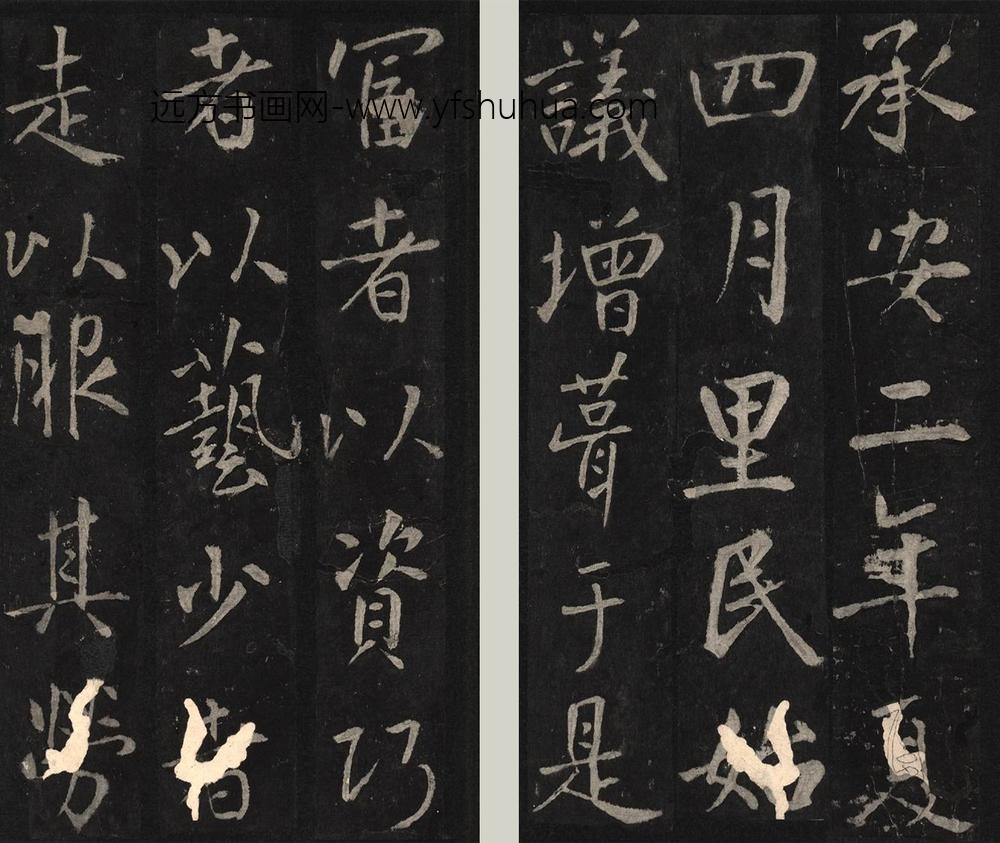 承安二年夏
四月里民始
議增葺于是
富者以資巧
者以藝少者
走以服其勞
远方书画网-www.yfshuhua.com